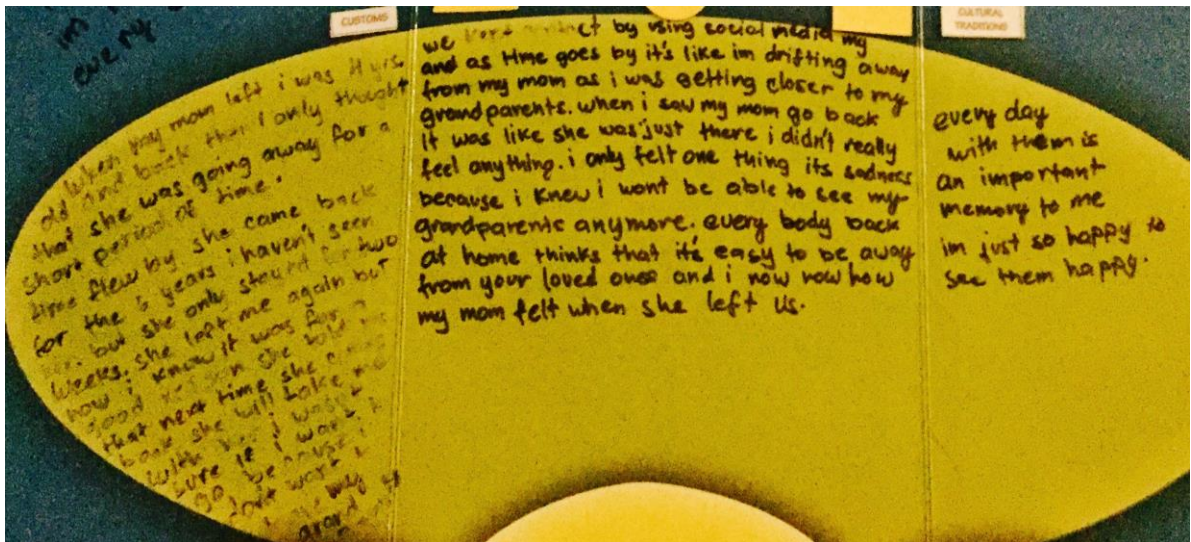 CUSTOMS
CULTURAL
TRADITIONS
im
every
when my mom left i was 4 yrs
old and back then i only thought
that she was going away for a
short period of time.
time flew by she came back
for the 5 years i haven't seen
her. but she only stayed for two
weeks. she left me again but
now i know it was for a
good reason she told me
that next time she comes
back she will take me
with her i wasn't
sure if i want to
go because i
don't want
my
grand
we kept contact by using social media my
and as time goes by it's like im drifting away
from my mom as i was getting closer to my
grandparents. when i saw my mom go back
it was like she was just there i didn't really
feel anything. i only felt one thing its sadness
because i knew i wont be able to see my
grandparents anymore. every body back
at home thinks that it's easy to be away
from your loved ones and i now now how
my mom felt when she left us.
every day
with them is
an important
memory to me
im just so happy to
see them happy.